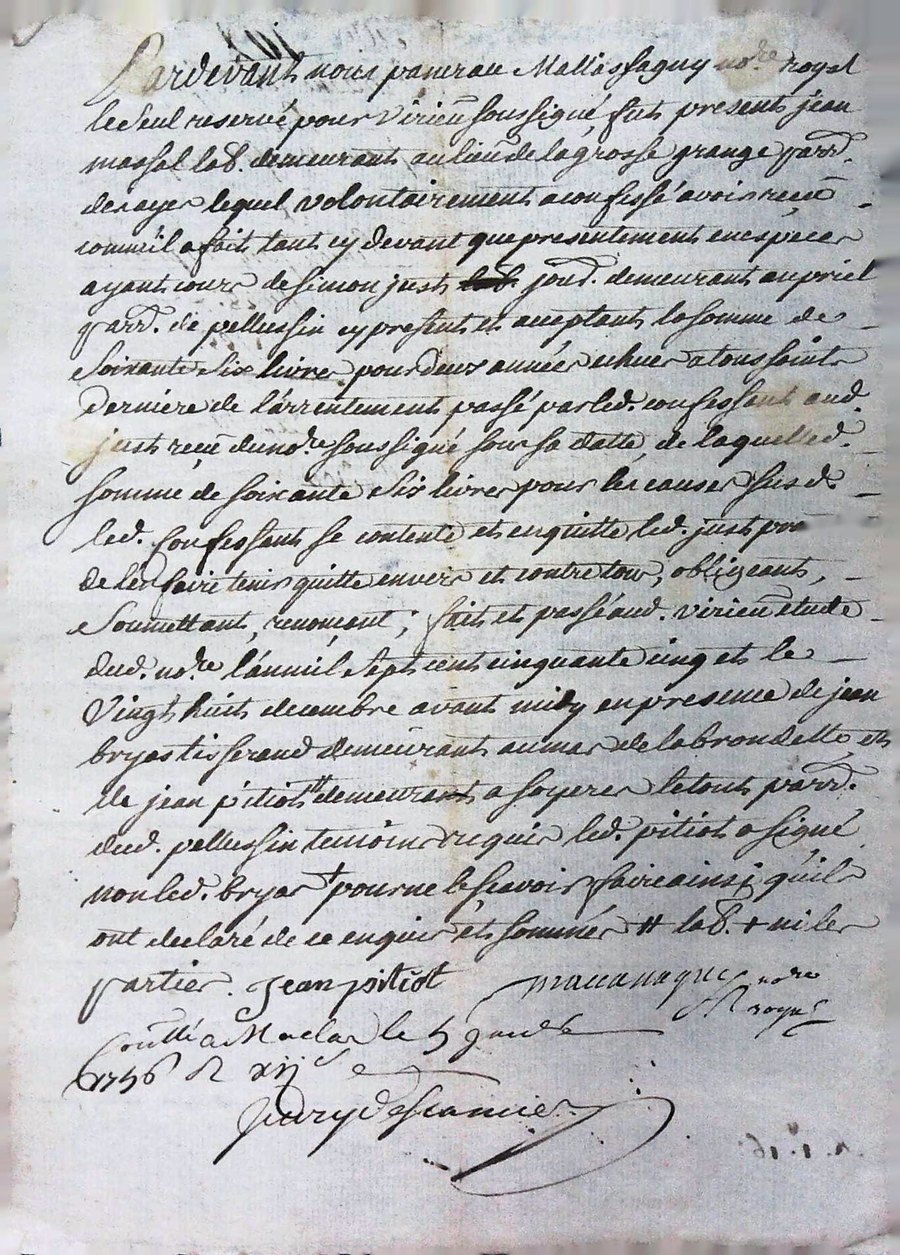 Pardevant nous pancrace Mallassagny no.re royal
le seul reservé pour virieu soussigné, fut present jean
massal lab. demeurant au lieu de la grosse grange parr.
de rayer lequel volontairement a confessé avoir reçu
comme il a fait tant cy devant que presentement en especes
ayant cours de simon just jourd. demeurant au priel
parr. de pellussin cy present et acceptant la somme de
soixante six livres pour deux années echues a toussaints
derniere de l'arrentement passé par led. confessant aud.
just reçu du no.re soussigné sous sa datte, de laquelle d.
somme de soixante six livres pour les causes sus d.
led. confessant se contente et en quitte led. just
de l'en faire tenir quitte envers et contre tous, obligeants,
soumettant, renonçant; fait et passé aud. virieu etude
dud. no.re l'an mil sept cent cinquante cinq et le
vingt huit decembre avant midy en presence de jean
bryas tisserand demeurant au mas de la brondelle et
de jean pitiot # demeurant a soyeres le tout parr.
dud. pellussin temoins requis led. pitiot a signé
non led. bryas + pour ne le scavoir faire ainsi qu'ils
ont declaré de ce enquis et sommés # lab. + ni les
parties. Jean pitiot
no.re royal
Conttlé a Maclas le 5 janv.
1756 R xij s